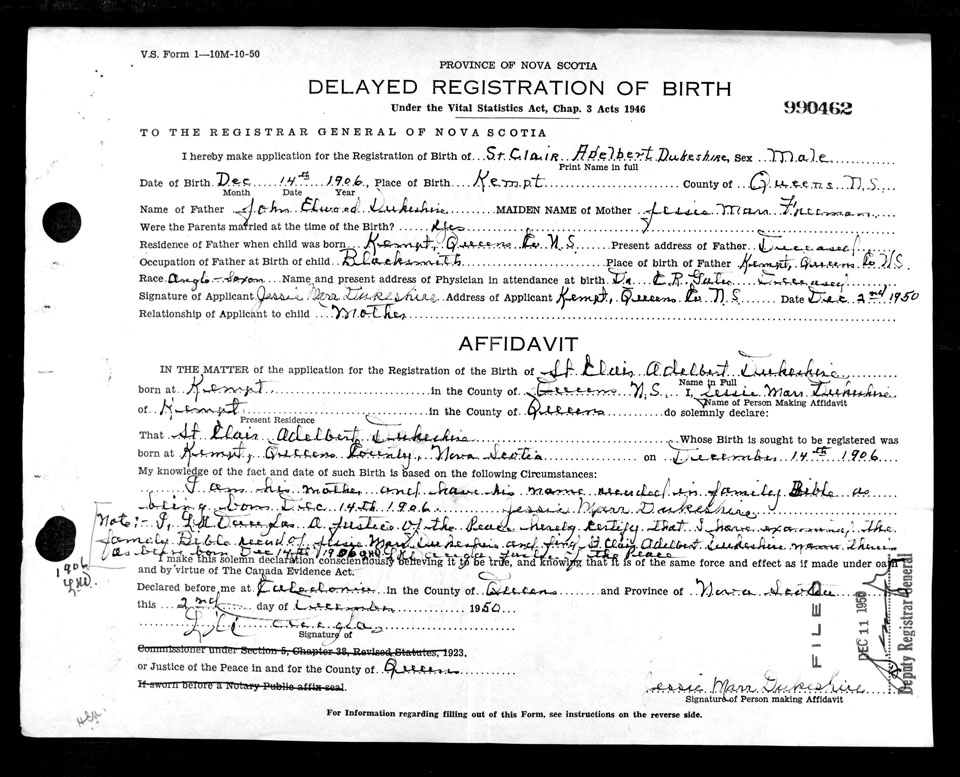 V.S. Form 1—10M-10-50
PROVINCE OF NOVA SCOTIA
DELAYED REGISTRATION OF BIRTH
Under the Vital Statistics Act, Chap. 3 Acts 1946
990462
TO THE REGISTRAR GENERAL OF NOVA SCOTIA
I hereby make application for the Registration of Birth of St. Clair Adelbert Dukeshire, Sex Male
Print Name in full
Date of Birth Dec 14th 1906, Place of Birth Kempt County of Queens N.S.
Month Date Year
Name of Father John Elwood Dukeshire MAIDEN NAME of Mother Jessie Marr Freeman
Were the Parents married at the time of the Birth? Yes
Residence of Father when child was born Kempt, Queens Co N.S Present address of Father Deceased
Occupation of Father at Birth of child Blacksmith Place of birth of Father Kempt, Queens Co N.S.
Race Anglo-Saxon Name and present address of Physician in attendance at birth Dr. Deceased
Signature of Applicant Jessie Marr Dukeshire Address of Applicant Kempt, Queens Co. N.S Date Dec 2nd 1950
Relationship of Applicant to child Mother
AFFIDAVIT
IN THE MATTER of the application for the Registration of the Birth of St Clair Adelbert Dukeshire
Name in Full
born at Kempt in the County of Queens N.S. I, Jessie Marr Dukeshire
Name of Person Making Affidavit
of Kempt in the County of Queens do solemnly declare:
Present Residence
That St Clair Adelbert Dukeshire Whose Birth is sought to be registered was
born at Kempt, Queens County, Nova Scotia on December 14th 1906
My knowledge of the fact and date of such Birth is based on the following Circumstances:
I am his mother and have his name recorded in family Bible as
being born Dec 14th 1906. Jessie Marr Dukeshire
Note:- I, a Justice of the Peace hereby certify that I have examined the
family Bible record of Jessie Marr Dukeshire and find St Clair Adelbert Dukeshire name therein
as been born Dec 14th 1906 Justice of the peace
1906
I make this solemn declaration conscientiously believing it to be true, and knowing that it is of the same force and effect as if made under oath
and by virtue of The Canada Evidence Act.
Declared before me at Caledonia in the County of Queens and Province of Nova Scotia
this 2nd day of December 1950
Signature of
Commissioner under Section 5, Chapter 38, Revised Statutes, 1923,
or Justice of the Peace in and for the County of Queens
If sworn before a Notary Public affix seal.
Jessie Marr Dukeshire
Signature of Person making Affidavit
FILED
DEC 11 1950
Deputy Registrar General
For Information regarding filling out of this Form, see instructions on the reverse side.